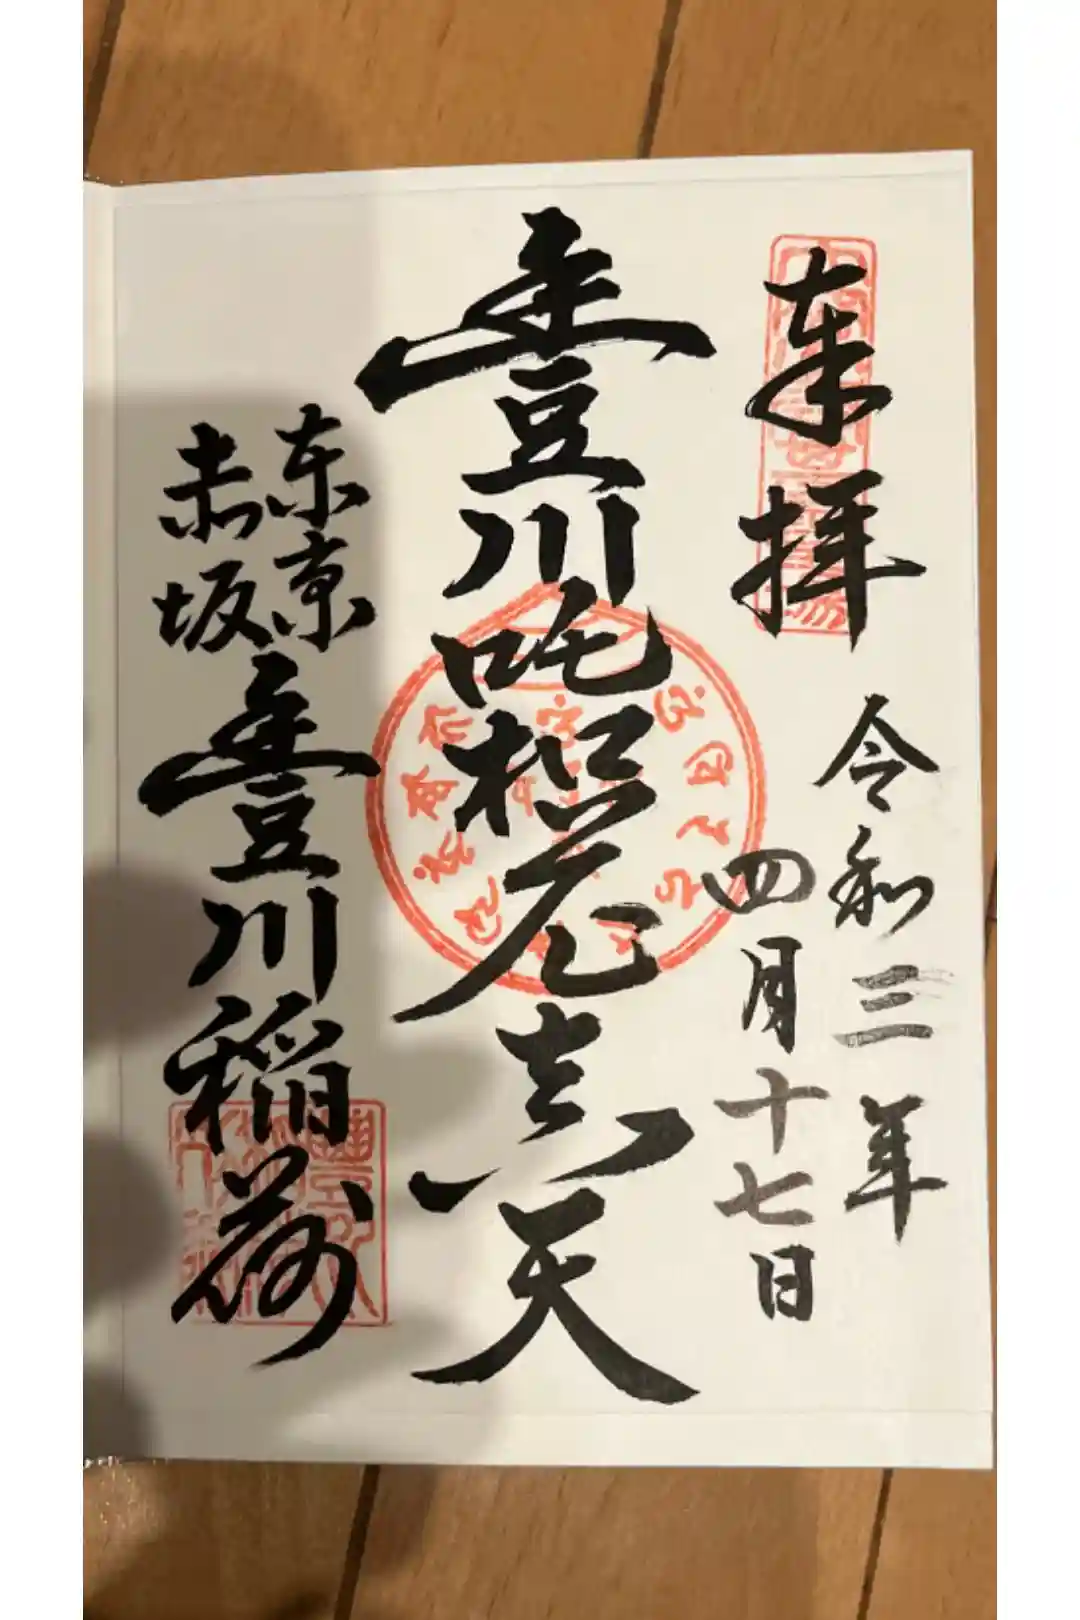 奉拝
令和三年
四月十七日
豊川吒枳尼真天
東京
赤坂
豊川稲荷